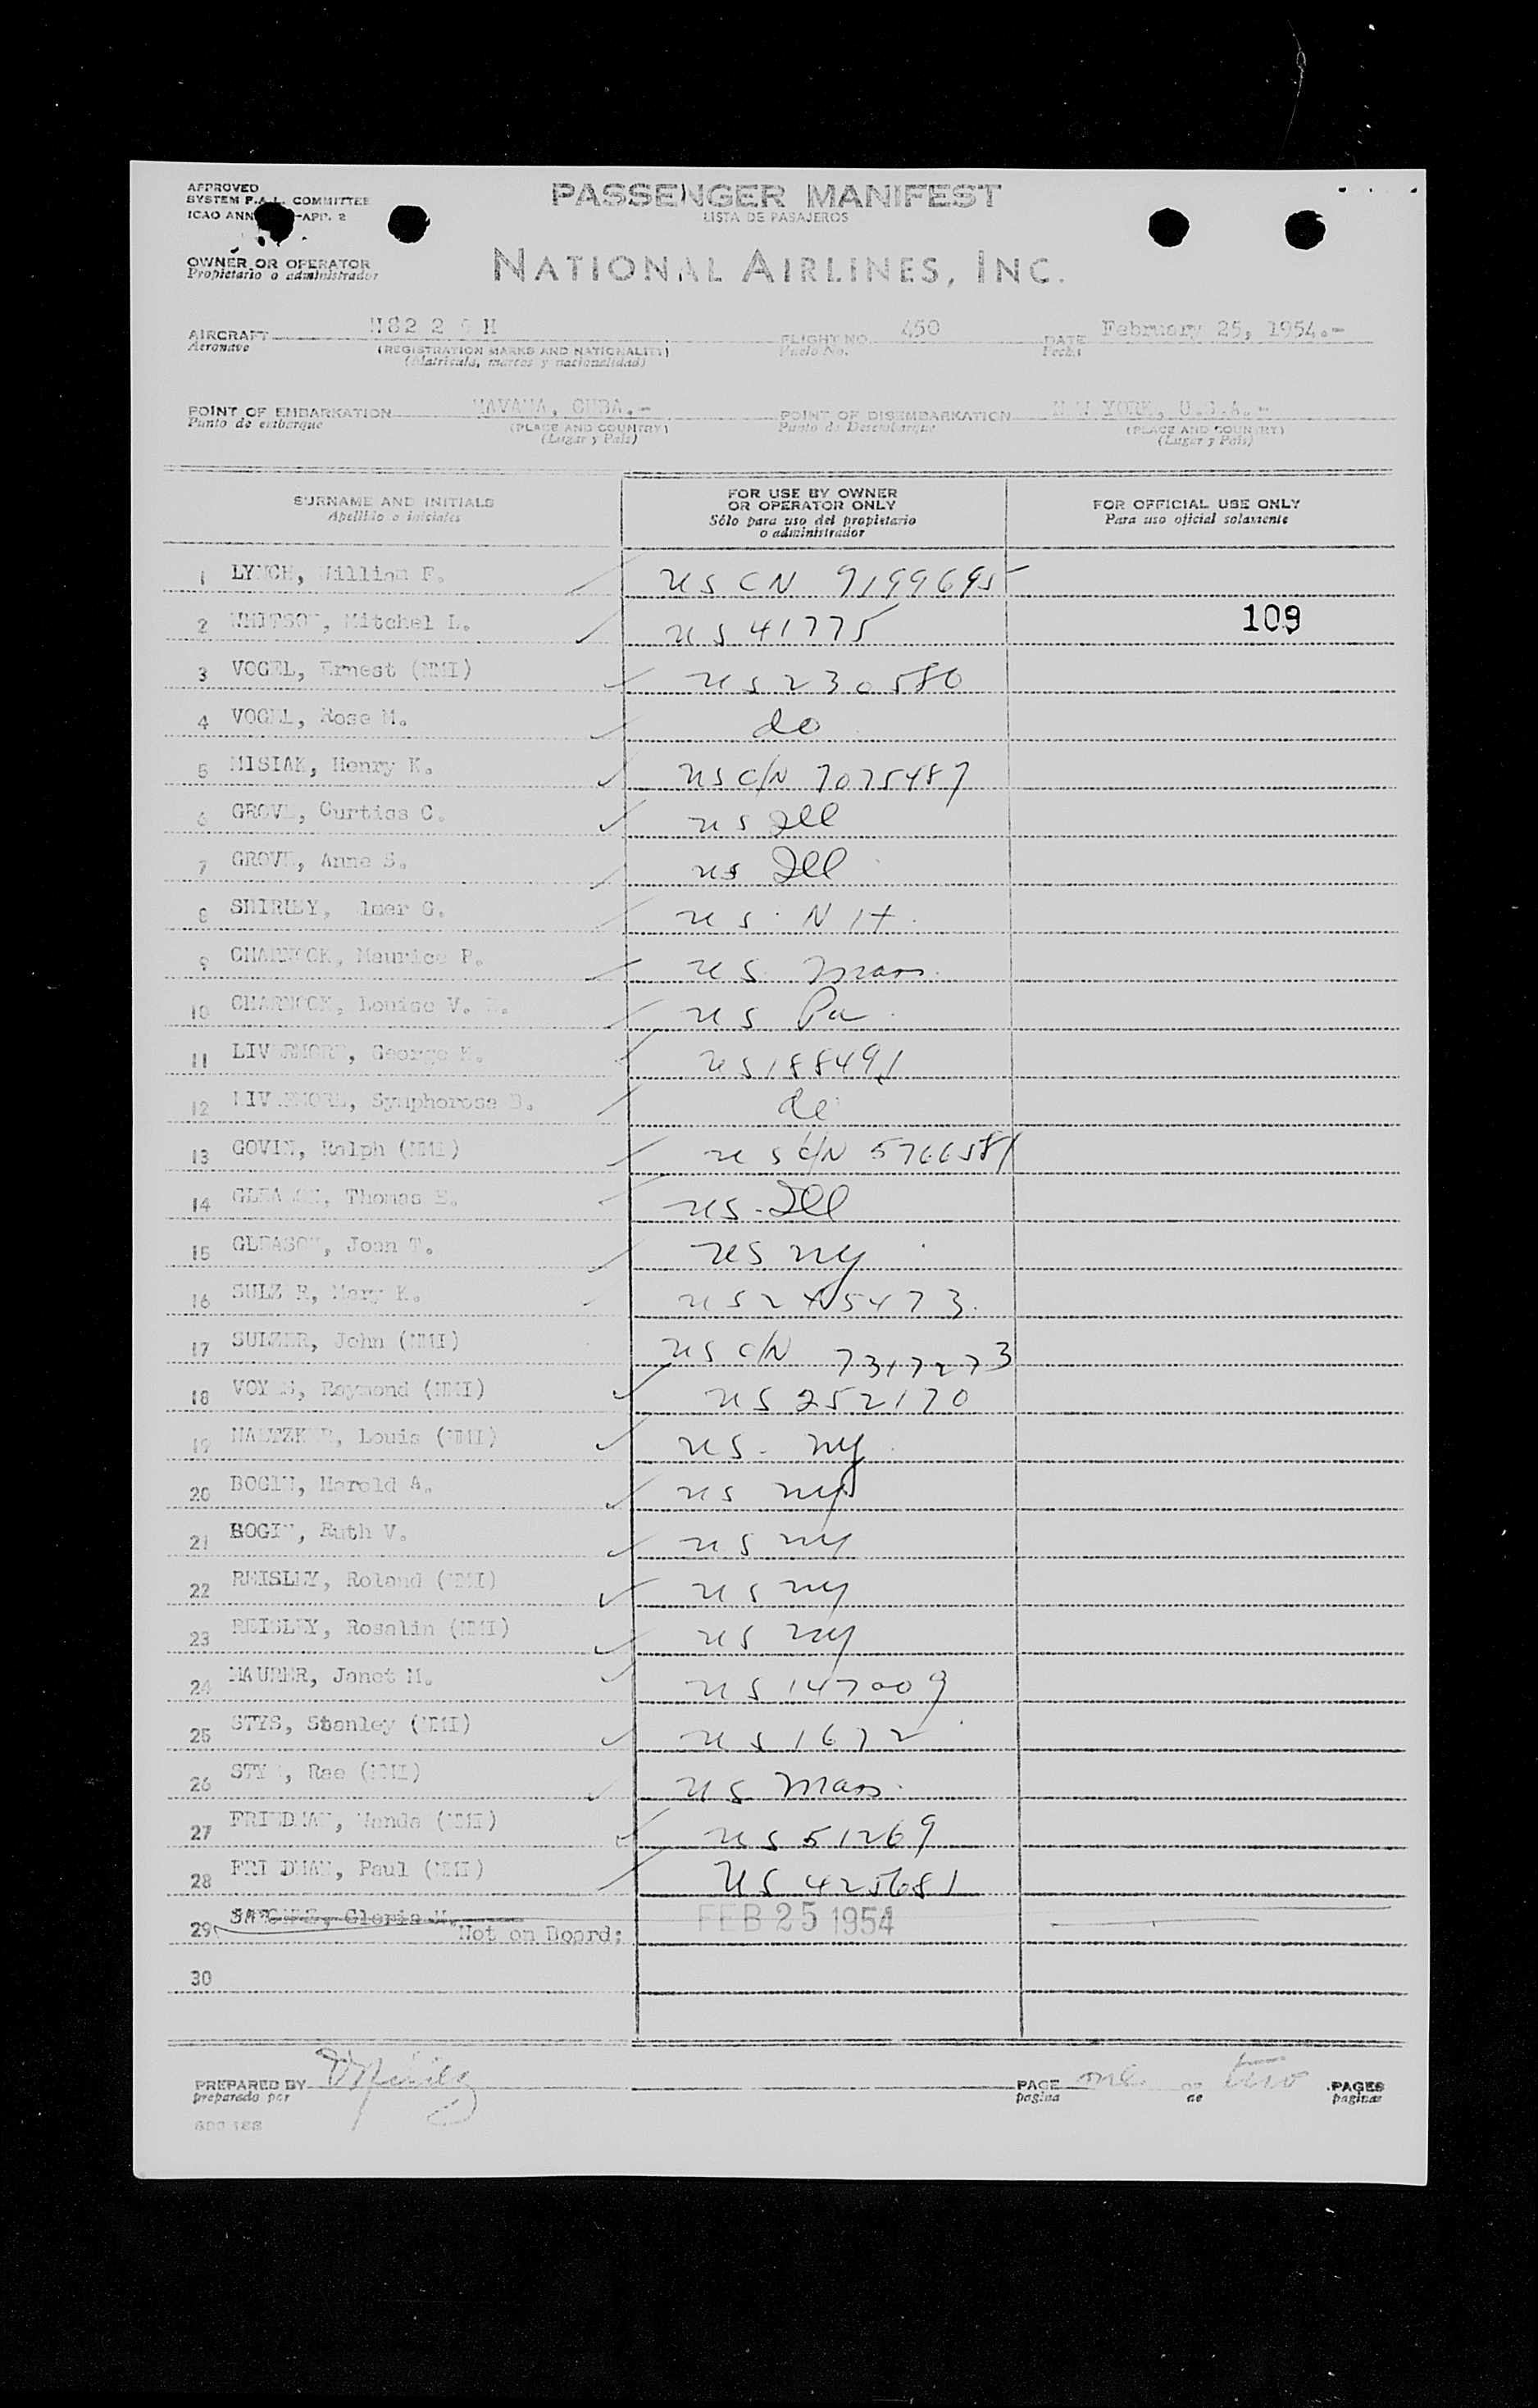 APPROVED
SYSTEM F.A.L. COMMITTEE
ICAO ANN -APP. 2
PASSENGER MANIFEST
LISTA DE PASAJEROS
OWNER OR OPERATOR
Propietario o administrador
NATIONAL AIRLINES, INC.
AIRCRAFT
Aeronave
(REGISTRATION MARKS AND NATIONALITY)
(Matricula, marcas y nacionalidad)
FLIGHT NO. 450
Vuelo No.
DATE February 25, 1954.-
Fecha
POINT OF EMBARKATION HAVANA, CUBA.-
Punto de embarque
(PLACE AND COUNTRY)
(Lugar y País)
POINT OF DISEMBARKATION NEW YORK, U.S.A.-
Punto de Desembarque
(PLACE AND COUNTRY)
(Lugar y País)
SURNAME AND INITIALS
Apellido e iniciales
FOR USE BY OWNER
OR OPERATOR ONLY
Sólo para uso del propietario
o administrador
FOR OFFICIAL USE ONLY
Para uso oficial solamente
1 LYNCH, William F. US CN 9199695
2 WHITSON, Mitchel L. US 41775 109
3 VOGEL, Ernest (NMI) US 230580
4 VOGEL, Rose M. do
5 MISIAK, Henry K. US C/N 7075487
6 GROVE, Curtiss C. US Ill
7 GROVE, Anne S. US Ill
8 SHIRLEY, Elmer G. US NH
9 CHARNOCK, Maurice P. US Mass
10 CHARNOCK, Louise V. US Pa
11 LIVERMORE, George US 188491
12 LIVERMORE, Symphorosa B. do
13 GOVIN, Ralph (NMI) US C/N 5766581
14 GLEASON, Thomas E. US Ill
15 GLEASON, Joan T. US NY
16 SULZER, Mary K. US 245473
17 SULZER, John (NMI) US C/N 7317273
18 Raymond (NMI) US 252170
19 Louis (NMI) US NY
20 BOGIN, Harold A. US NY
21 BOGIN, Ruth V. US NY
22 REISLEY, Roland (NMI) US NY
23 REISLEY, Rosalin (NMI) US NY
24 MAURER, Janet M. US 147009
25 STYS, Stanley (NMI) US 1672
26 STYS, Rae (NMI) US Mass.
27 FRIEDMAN, Wanda (NMI) US 51269
28 FRIEDMAN, Paul (NMI) US 425681
29 Gloria M. Not on Board; FEB 25 1954
30
PREPARED BY
preparado por
PAGE one OF two PAGES
pagina de paginas